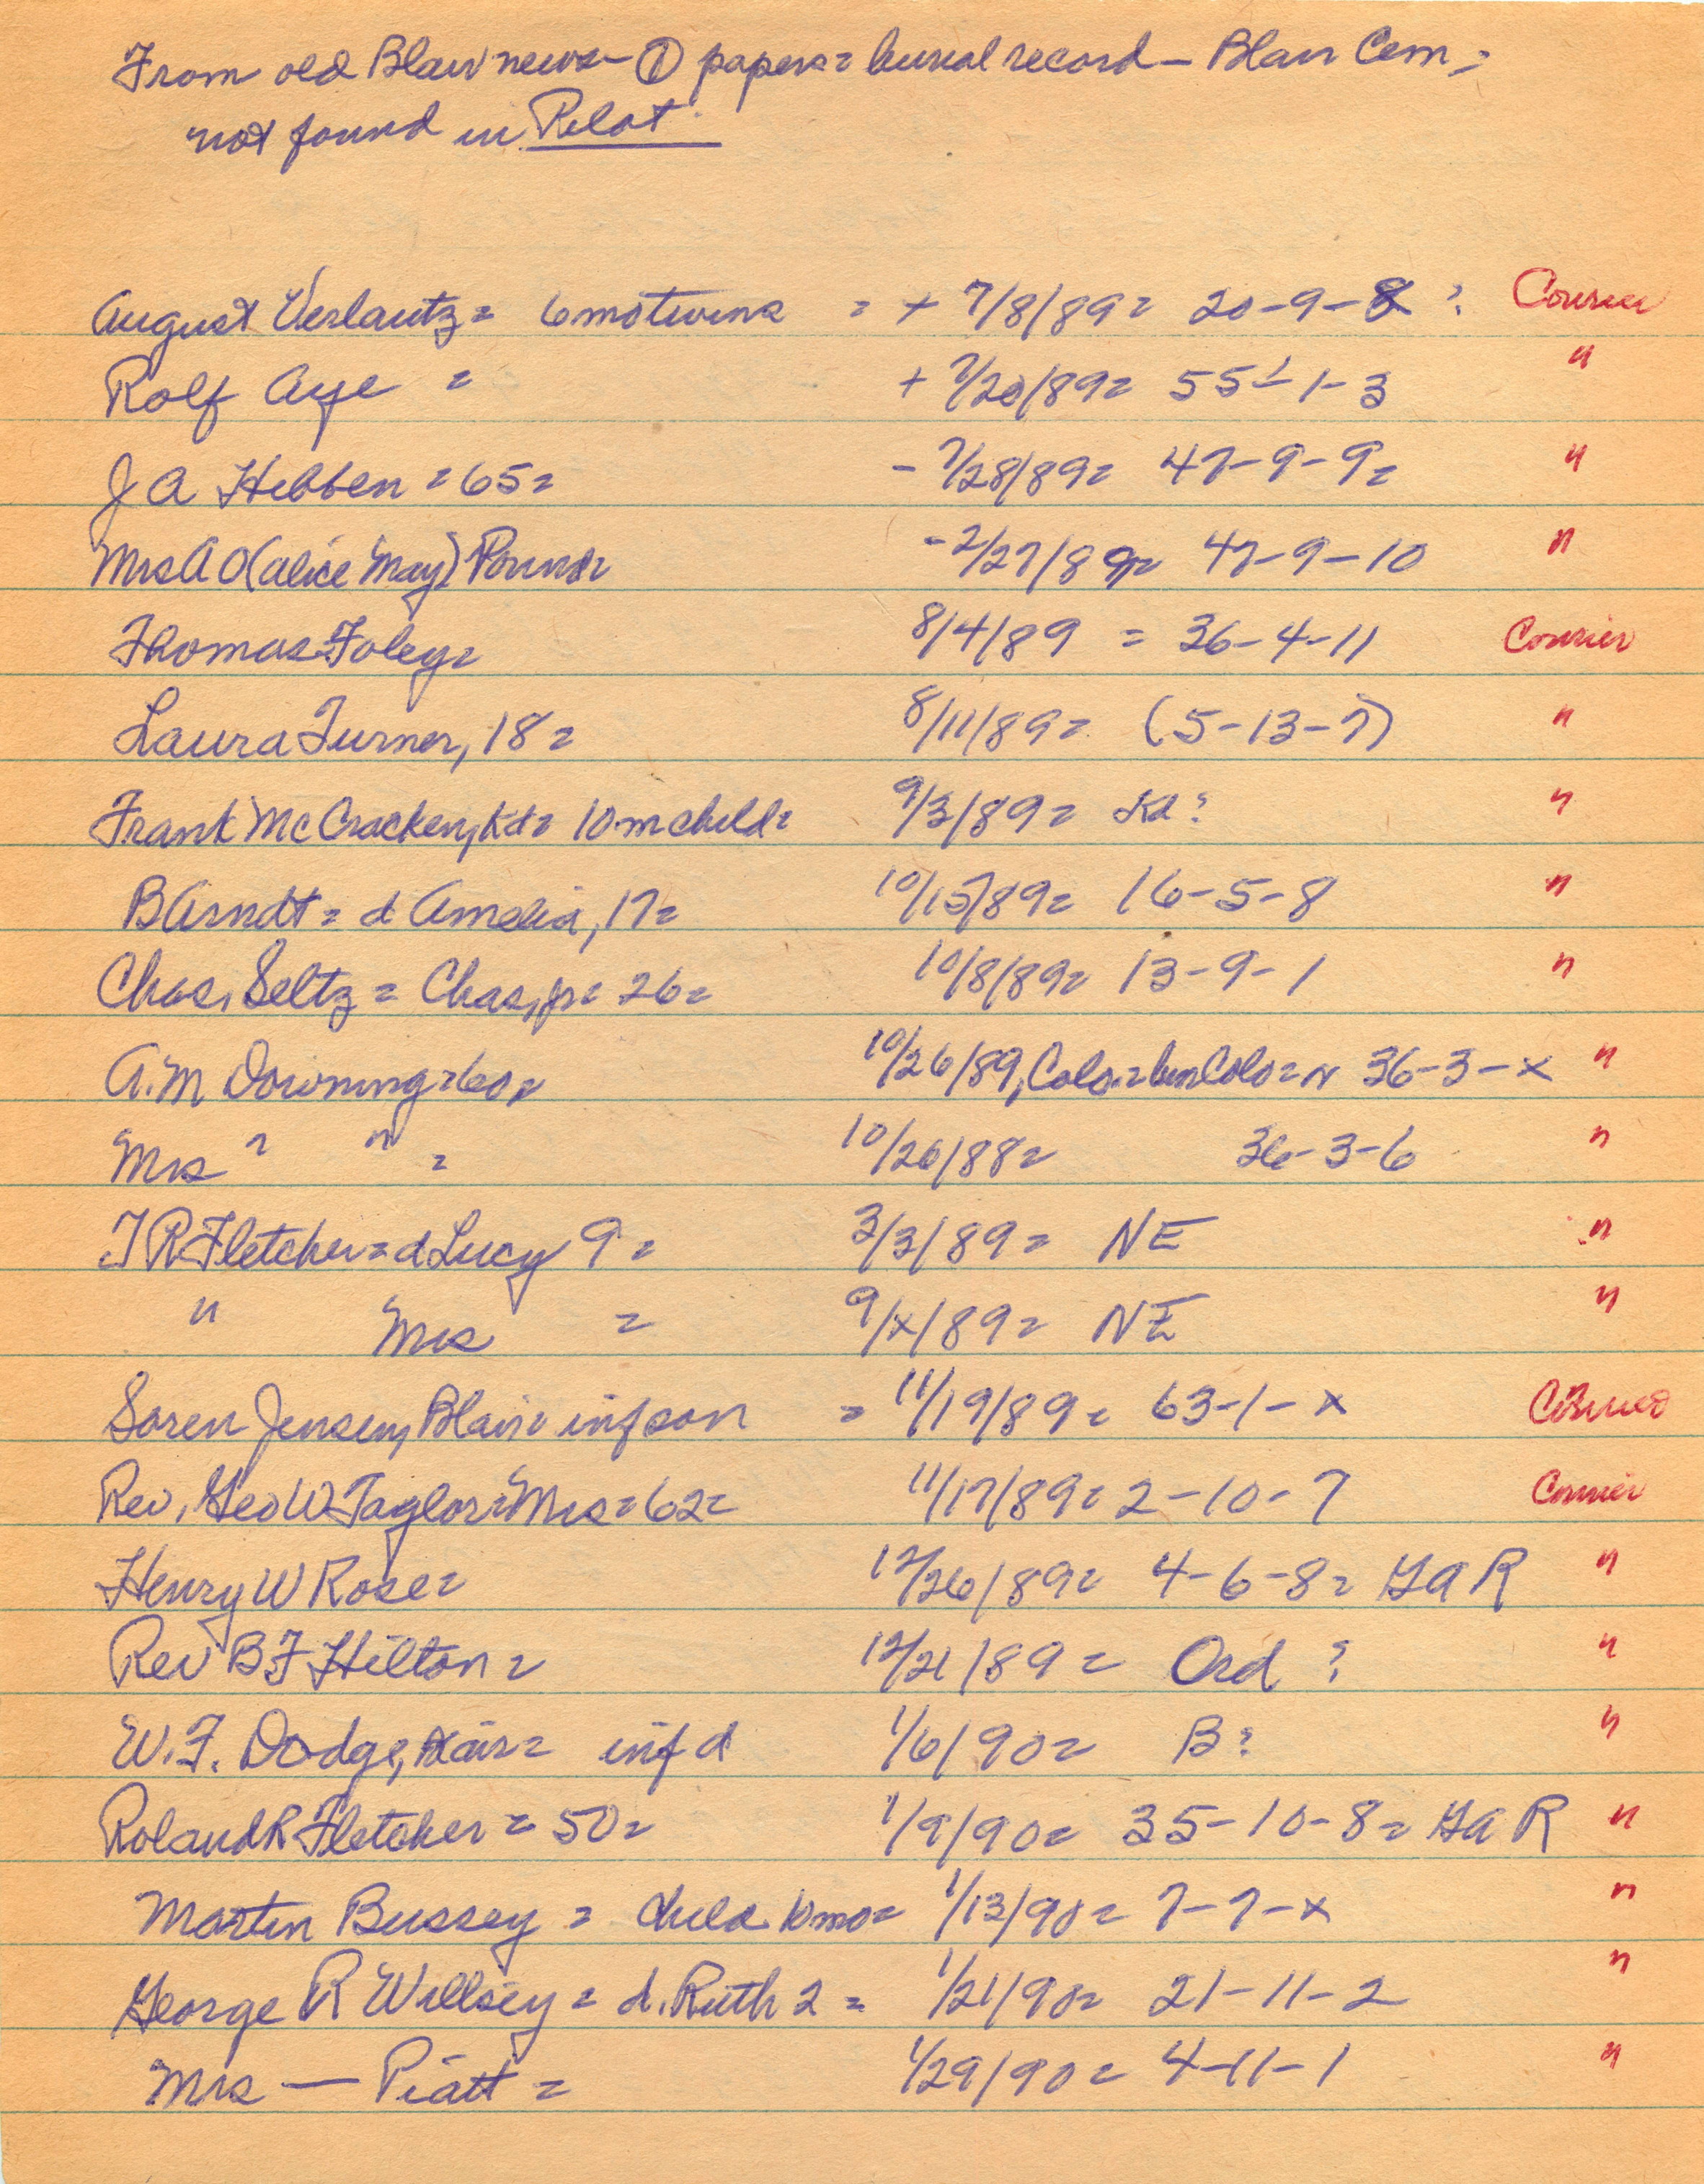 From old Blair news- ① papers = burial record - Blair Cem,=
not found in Pilot.
August Verlautz = 6 mo twins = + 7/8/89 = 20-9-8 ? Courier
Rolf Aye = + 7/20/89 = 55-1-3 "
J A Hebben = 65 = - 7/28/89 = 47-9-9 = "
Mrs A O (Alice May) Pound = - 2/27/89 = 47-9-10 "
Thomas Foley = 8/4/89 = 36-4-11 Courier
Laura Turner, 18 = 8/11/89 = (5-13-7) "
Frank McCracken, Kd = 10 m child = 9/3/89 = Kd ? "
B Arndt = d Amelia, 17 = 10/15/89 = 16-5-8 "
Chas, Seltz = Chas, jr = 26 = 10/8/89 = 13-9-1 "
A. M Downing = 60 = 10/26/89, Colo. = bur Colo = N 36-3-x "
Mrs " " = 10/26/88 = 36-3-6 "
T R Fletcher = d Lucy 9 = 3/3/89 = NE "
" Mrs = 9/x/89 = NE "
Soren Jensen, Blair = inf son = 11/19/89 = 63-1-x Courier
Rev, Geo W Taylor = Mrs = 62 = 11/17/89 = 2-10-7 Courier
Henry W Rose = 12/26/89 = 4-6-8 = G A R "
Rev B F Hilton = 12/21/89 = Ord ? "
W. F. Dodge, = inf d 1/6/90 = B ? "
Roland R Fletcher = 50 = 1/9/90 = 35-10-8 = G A R "
Martin Bussey = child 10 mo = 1/13/90 = 7-7-x "
George R Willsey = d. Ruth 2 = 1/21/90 = 21-11-2 "
Mrs — Piatt = 1/29/90 = 4-11-1 "